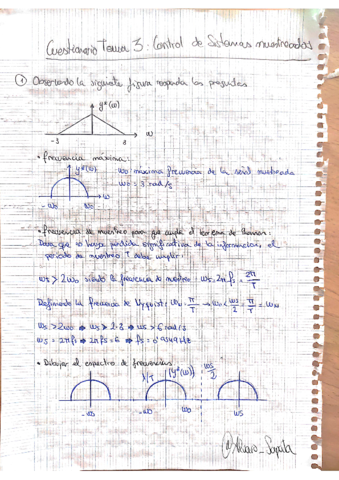 Cuestionario Tema 3: Control de Sistemas muestreados
① Observando la siguiente figura responda las preguntas
y*(ω)
-3 3 ω
• frecuencia máxima:
y*(ω)
ωo máxima frecuencia de la señal muestreada
-ωo ωo ω
ωo = 3 rad/s
• frecuencia de muestreo para que cumpla el teorema de Shannon:
Para que no haya pérdida significativa de la información, el
período de muestreo T debe cumplir:
ωs > 2ωo siendo la frecuencia de muestreo: ωs = 2π fs = 2π/T
Definiendo la frecuencia de Nyquist: ωN = π/T → ωo < ωs/2 = π/T = ωN
ωs > 2ωo ⇒ ωs > 2·3 ⇒ ωs > 6 rad/s
ωs = 2πfs ⇒ 2πfs = 6 ⇒ fs = 0'9549 Hz
• Dibujar el espectro de frecuencias
1/T |y*(ω)| ωs/2
-ωo -ωo ωo ωs